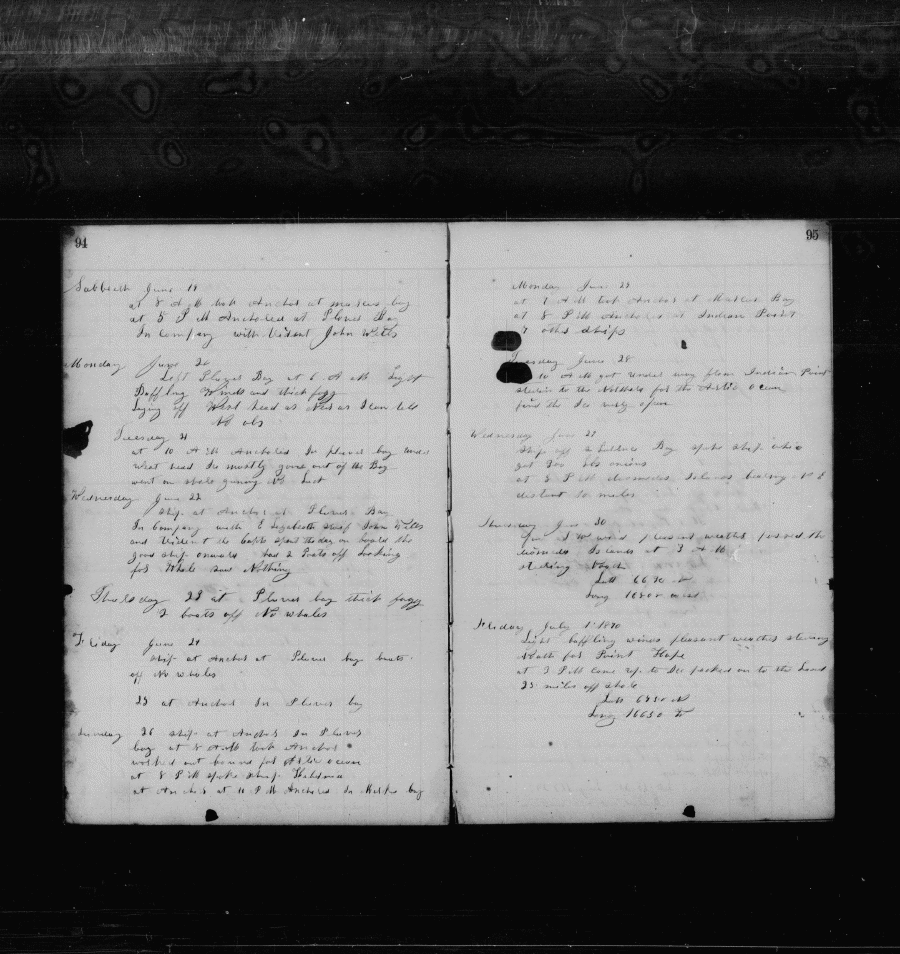 94
Sabbath June 19
at 8 A M took Anchor at marcus bay
at 5 P M Anchored at Plover Bay
In company with Trident John Wells
Monday June 20
Left Plover Bay at 6 A M Light
Baffling Winds and thick fogg
Lying off West head as Near as I can tell
No obs
Tuesday 21
at 10 A M Anchored In plover bay under
west head Ice mostly gone out of the Bay
went on shore guning No Luck
Wednesday June 22
Ship at Anchor at Plover Bay
In Company with Elizabeth Swift John Wells
and Trident the Capts spent the day on board the
good ship onward had 2 Boats off Looking
for Whale saw Nothing
Thursday 23 at Plover bay thick fogg
2 boats off No whales
Friday June 24
Ship at Anchor at Plover bay boats
off No whales
25 at Anchor In Plover bay
Sunday 26 ship at Anchor In Plover
bay at 8 A M took Anchor
worked out bound for Artic ocean
at 8 P M spoke ship
at Anchor at 11 P M Anchored In Marcus bay
95
Monday June 28
at 7 A M took Anchor at Marcus Bay
at 8 P M Anchored at Indian Point
7 other ships
Tuesday June 28
10 A M got under way from Indian Point
steared to the Nothard for the Artic Ocean
find the Ice verry open
Wednesday June 29
Ship off St Lawrence Bay spoke ship Ohio
got 300 lbs onions
at 8 P M diomedes Islands bearing N E
distant 10 miles
Thursday June 30
S W wind pleasant weather passed the
diomedes Islands at 3 A M
stearing North
Latt 66 30 N
Long 168 00 West
Friday July 1st 1870
Light baffling winds pleasant weather stearing
North for Point Hope
at 3 P M Came up to Ice packed on to the Land
25 miles off shore
Latt 67 50 N
Long 166 50 W